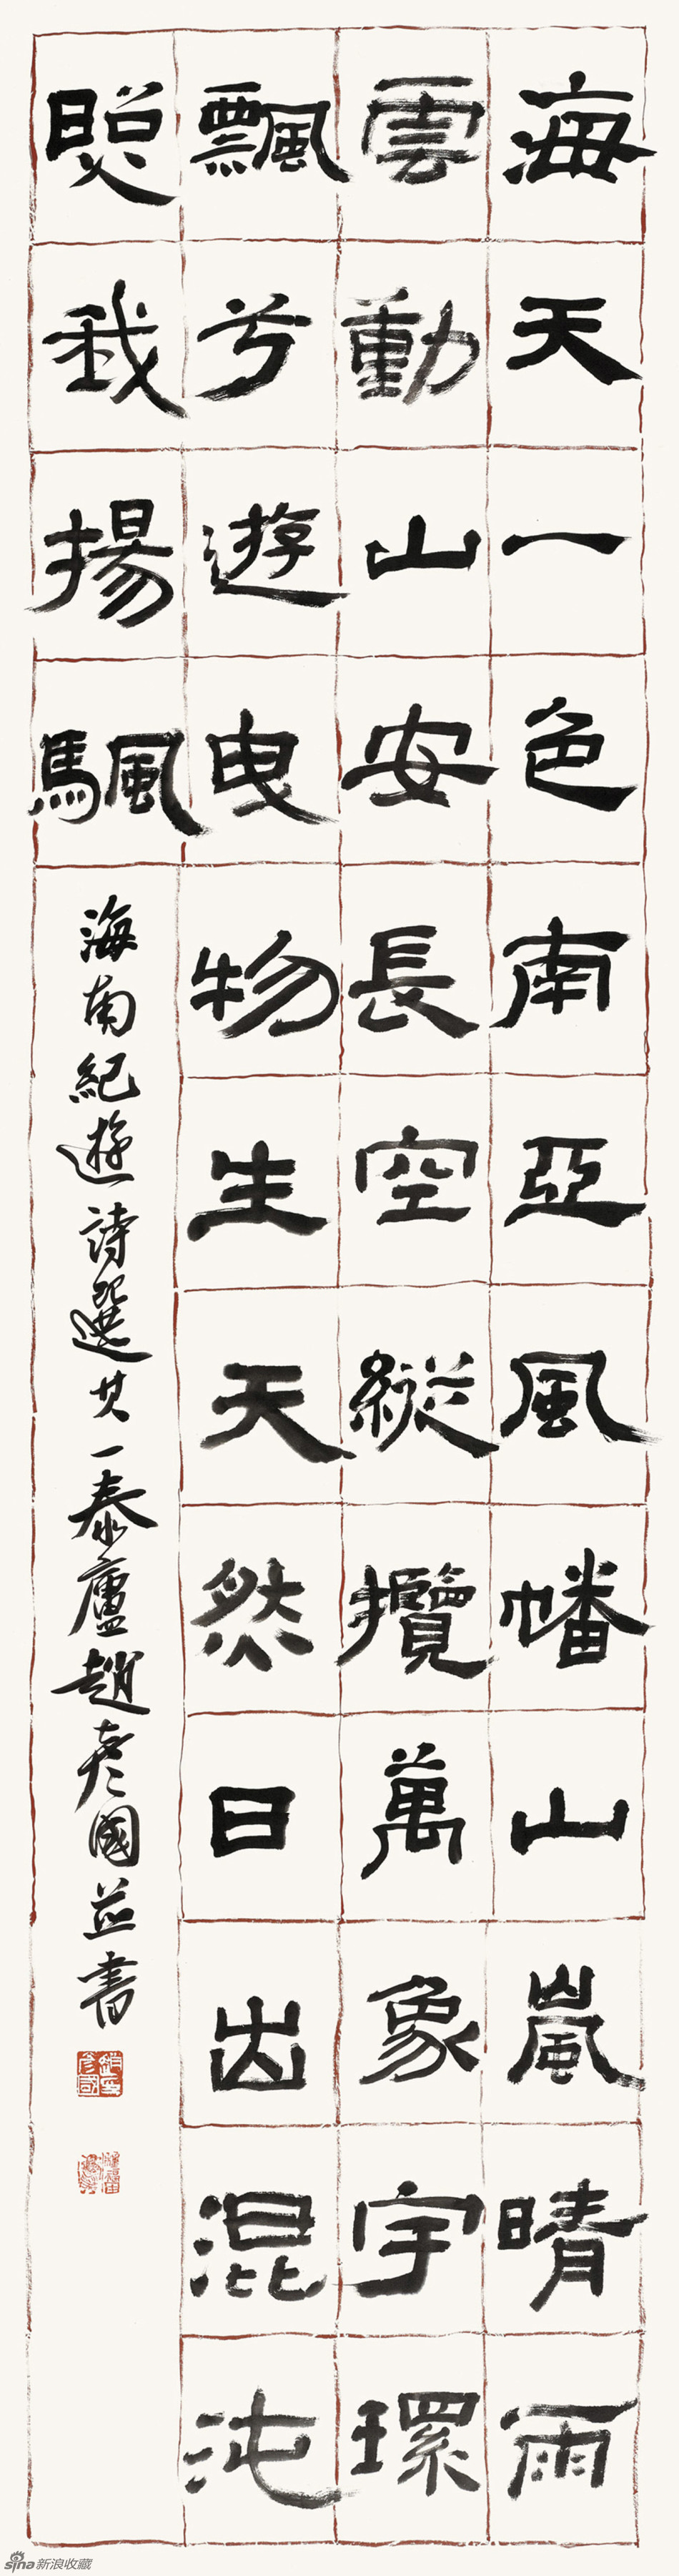 海天一色南亞風幡山嵐晴雨
雲動山安長空縱攬萬象宇環
飄兮遊曳物生天然日出混沌
照我揚颿
海南紀遊詩選其一泰廬趙彥國並書
趙印彥國
sina新浪收藏